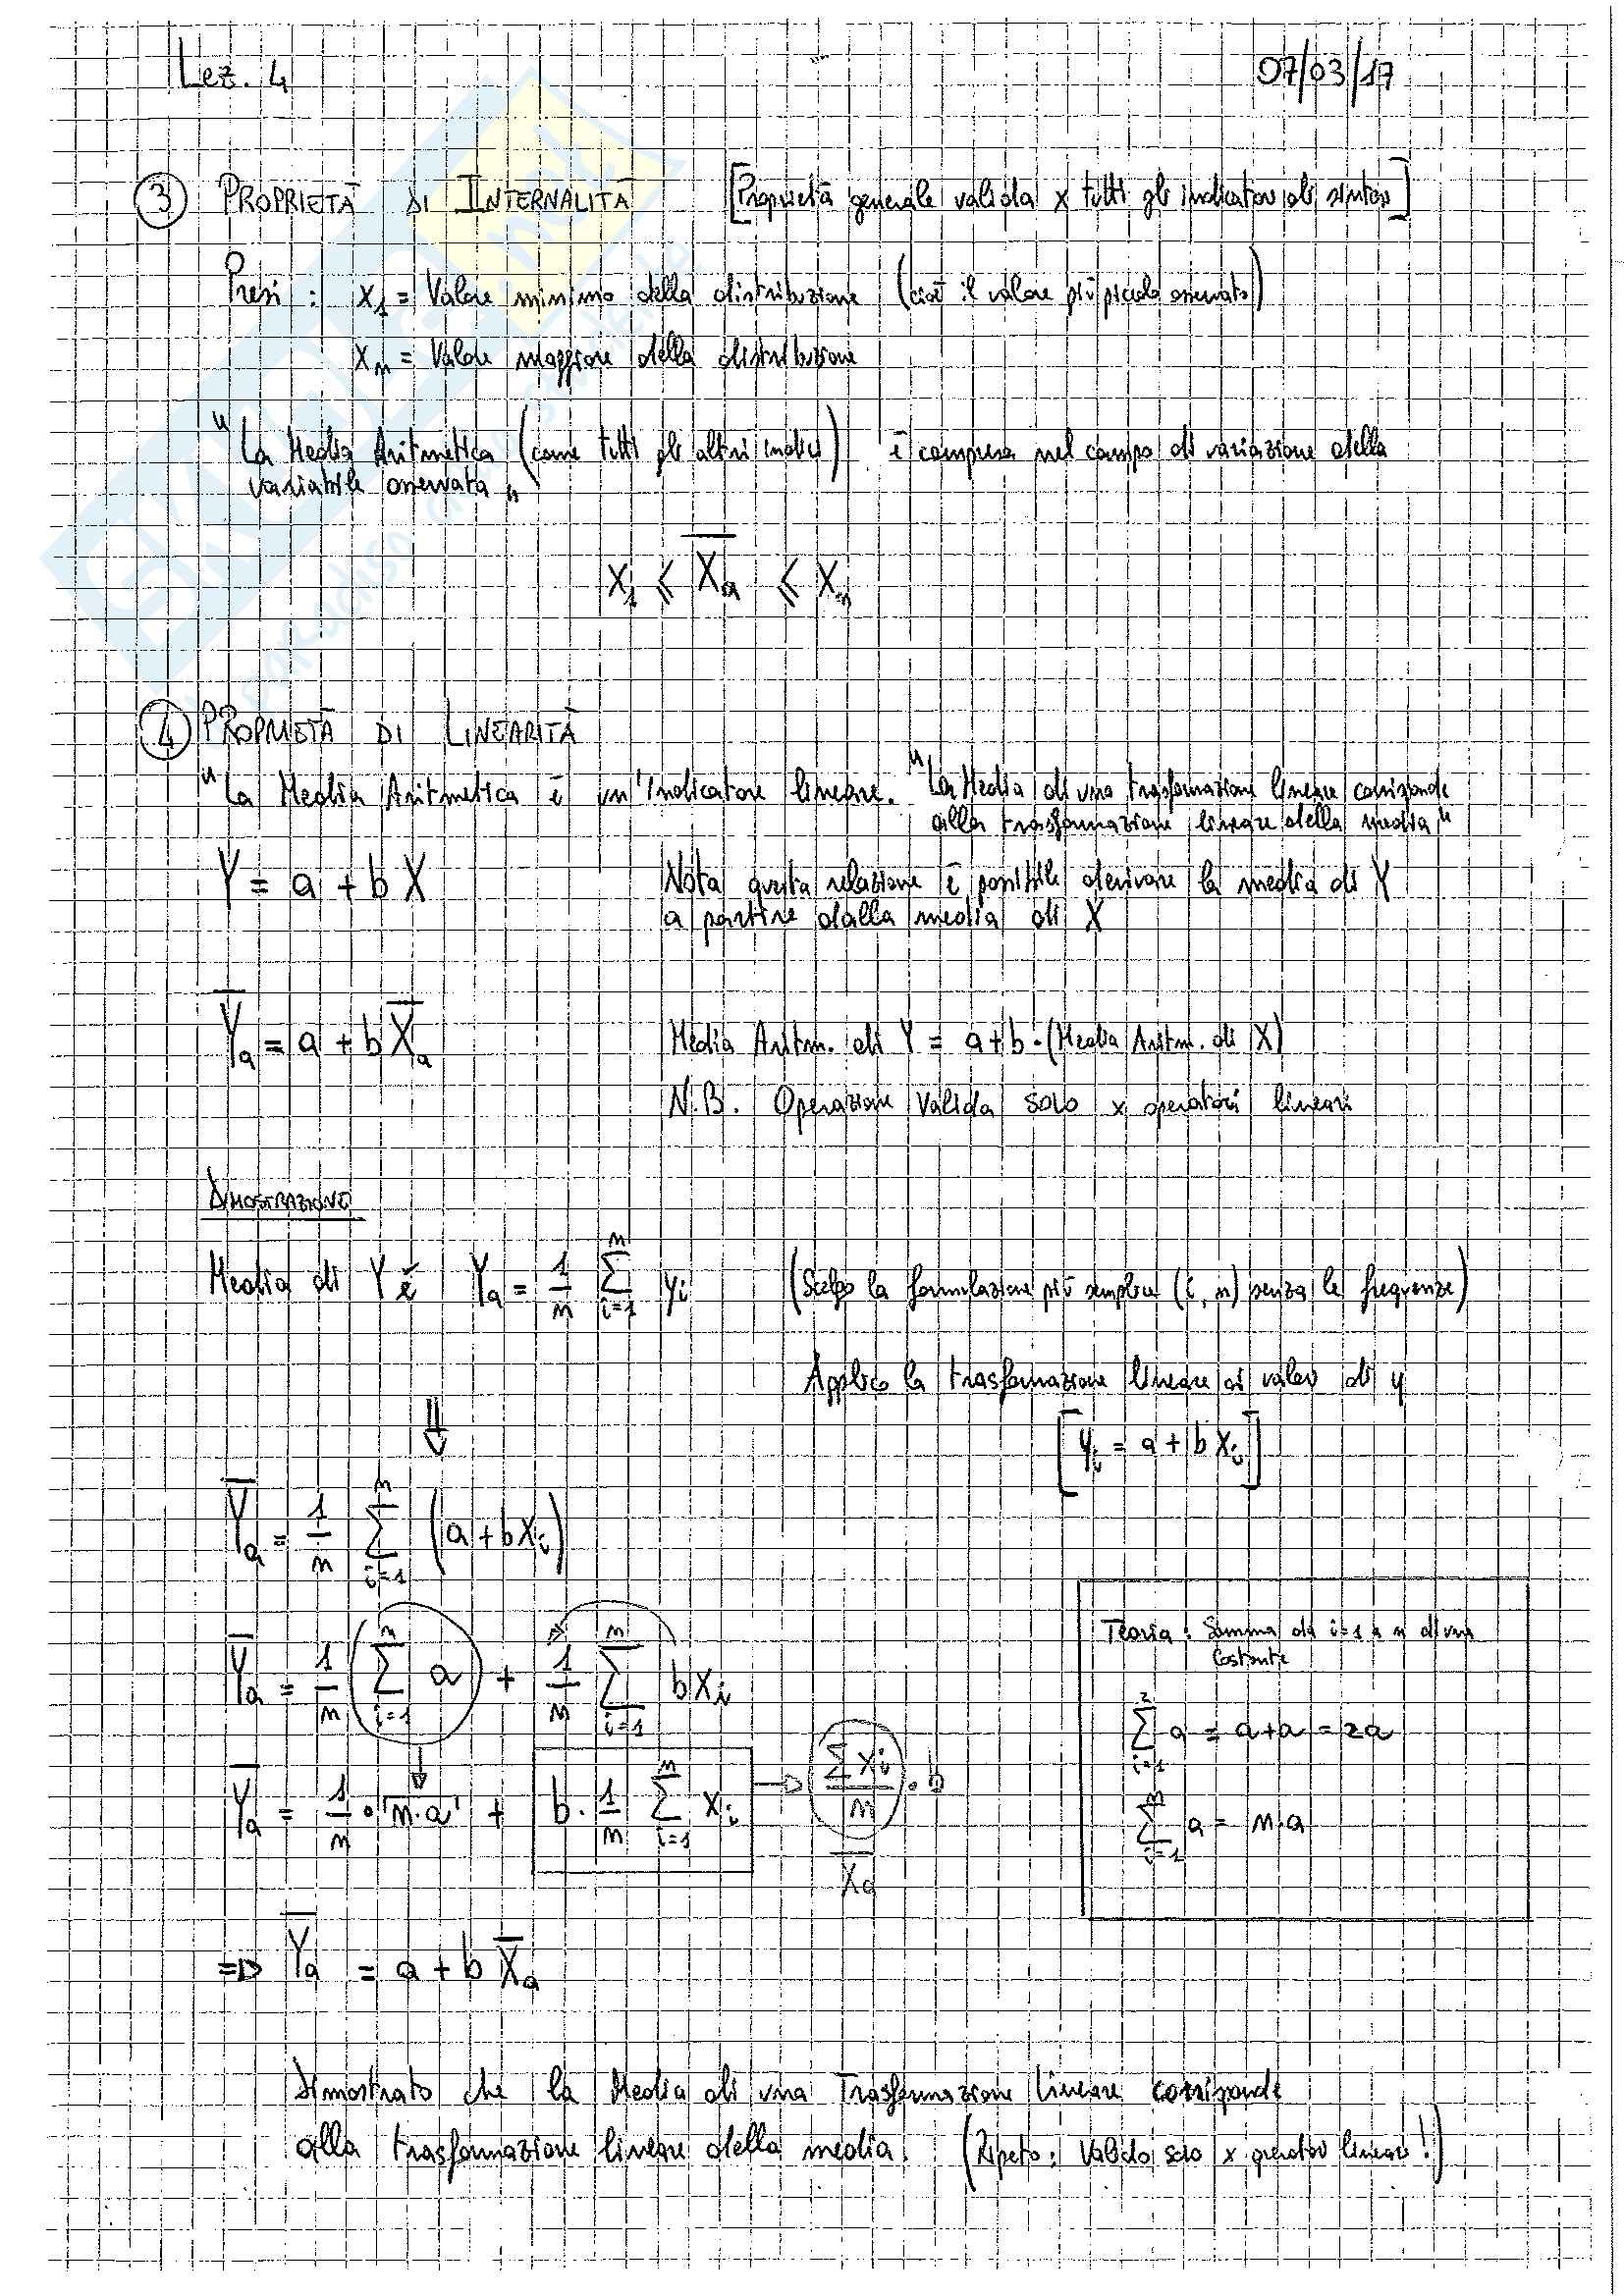 Lez. 4
07/03/17
③ PROPRIETÀ DI INTERNALITÀ [Proprietà generale valida x tutti gli indicatori di sintesi]
Presi : x₁ = Valore minimo della distribuzione (cioè il valore più piccolo osservato)
xₙ = Valore maggiore della distribuzione
" La Media Aritmetica (come tutti gli altri indici) è compresa nel campo di variazione della
variabile osservata "
X₁ ⩽ X̅a ⩽ Xₙ
④ PROPRIETÀ DI LINEARITÀ
" La Media Aritmetica è un'Indicatore lineare. " La Media di una trasformazione lineare corrisponde
alla trasformazione lineare della media "
Y = a + b X
Nota questa relazione è possibile derivare la media di Y
a partire dalla media di X
Y̅a = a + b X̅a
Media Aritm. di Y = a + b · (Media Aritm. di X)
N.B. Operazione Valida solo x operatori lineari
DIMOSTRAZIONE
Media di Y è Ya = 1/n Σ(i=1..n) yi (Scelgo la formulazione più semplice (i, n) senza le frequenze)
Applico la trasformazione lineare ai valori di y
⇓
[yi = a + b xi]
Y̅a = 1/n Σ(i=1..n) (a + b Xi)
Y̅a = 1/n (Σ(i=1..n) a) + 1/n Σ(i=1..n) b Xi
Y̅a = 1/n · n·a + b · 1/n Σ(i=1..n) Xi → Σ Xi / n · b
X̅a
Teoria : Somma da i=1 a n di una
Costante
Σ(i=1..2) a = a+a = 2a
Σ(i=1..n) a = n·a
⇒ Y̅a = a + b X̅a
Dimostrato che la Media di una Trasformazione lineare corrisponde
alla trasformazione lineare della media. (Ripeto: Valido solo x operatori lineari!)